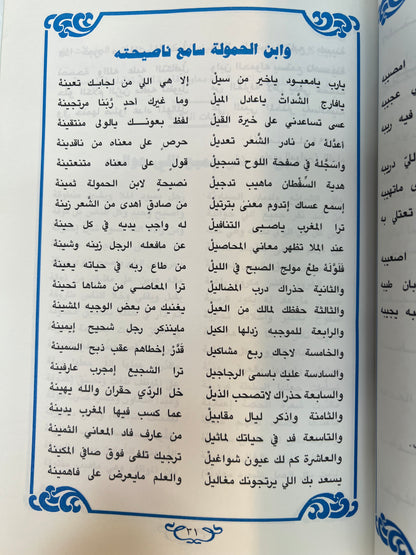 وابن الحمولة سامع ناصيحته
يارب يامعبود ياخير من سيل إلا هي اللي من لجابك تعينة
يافارج الشدّات ياعادل الميل وما غيرك احد ربنا مرتجينة
عسى تساعدني على خيرة القيل لفظ بعونك يالولى منتقينة
اعدله من نادر الشعر تعديل حرص على معناه من ناقدينة
واسجله في صفحة اللوح تسجيل قول على معناه متنعتينة
هدية السفطان ماهيب تدجيل نصيحة لابن الحمولة ثمينة
إسمع عساك إتدوم معنى بترتيل من صادق اهدى من الشعر زينة
ترا المغرب ياصبى التنافيل له واجب يديه في كل حينة
عند الملا تظهر معاني المحاصيل عن مافعله الرجل زينه وشينة
فلوّنة طع مولج الصبح في الليل من طاع ربه في حياته يعينة
والثانية حذراك درب المضاليل ترا المعاصي من مشاها تحينة
والثالثة حفظك لمالك من العيل يغنيك من بعض الوجيه المشينة
والرابعة للموجبه زدلها الكيل مايندكر رجل شحيح إيمينة
والخامسة لاجاك ربع مشاكيل قدّر إخطاهم عقب ذبح السمينة
والسادسة عليك باسمى الرجاجيل ترا الشجيع إمجرب عارفينة
والسابعة حذراك لاتصحب الذيل خل الردّي حقران والله يهينة
والثامنة واذكر ليال مقابيل عما كسب فيها المغرب يدينة
والتاسعة فد في حياتك لماثيل من عارف فاد المعاني الثمينة
والعاشرة كم لك عيون شواغيل ترجيك تلفى فوق صافي المكينة
يسعد بك اللي يرتجونك مغاليل والعلم مايعرض على فاهمينة
٣١